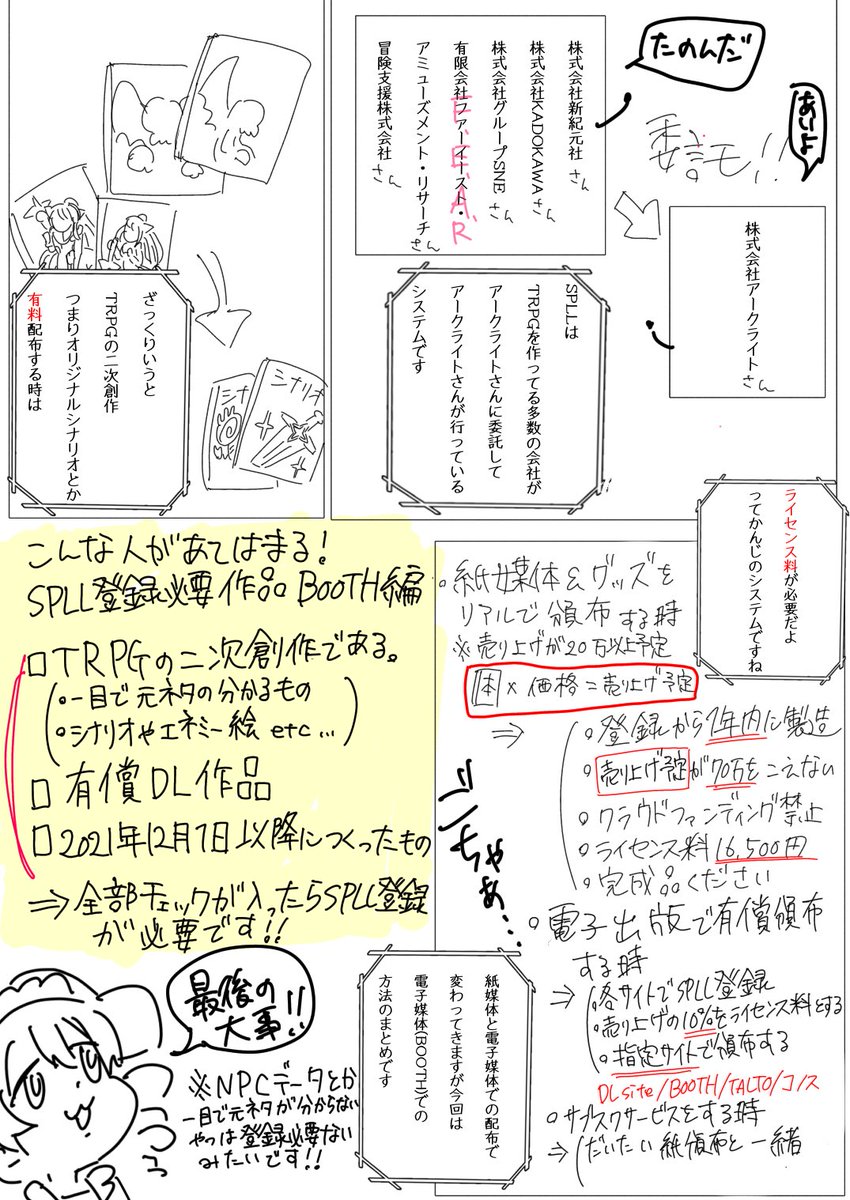 たのんだ
あいよ
委託!!
株式会社新紀元社さん
株式会社KADOKAWAさん
株式会社グループSNEさん
有限会社ファーイースト・
アミューズメント・リサーチさん
F.E.A.R
冒険支援株式会社さん
株式会社アークライトさん
SPLLは
TRPGを作ってる多数の会社が
アークライトさんに委託して
アークライトさんが行っている
システムです
シナリオ
シナ
ざっくりいうと
TRPGの二次創作
つまりオリジナルシナリオとか
有料配布する時は
ライセンス料が必要だよ
ってかんじのシステムですね
。紙媒体&グッズを
リアルで頒布する時
※売り上げが20万以上予定
体×価格=売り上げ予定
⇒
。登録から1年内に製造
。売り上げ予定が70万をこえない
。クラウドファンディング禁止
。ライセンス料16,500円
。完成品ください
。電子出版で有償頒布
する時
⇒
・各サイトでSPLL登録
・売り上げの10%をライセンス料とする
・指定サイトで頒布する
DLsite/BOOTH/TALTO/コノス
。サブスクサービスをする時
⇒だいたい紙頒布と一緒
こんな人があてはまる!
SPLL登録必要作品BOOTH編
□TRPGの二次創作である。
(。一目で元ネタの分かるもの
。シナリオやエネミー絵etc…)
□有償DL作品
□2021年12月7日以降につくったもの
⇒全部チェックが入ったらSPLL登録
が必要です!!
紙媒体と電子媒体での配布で
変わってきますが今回は
電子媒体(BOOTH)での
方法のまとめです
最後の
大事!!
※NPCデータとか
一目で元ネタが分からない
やつは登録必要ない
みたいです!!